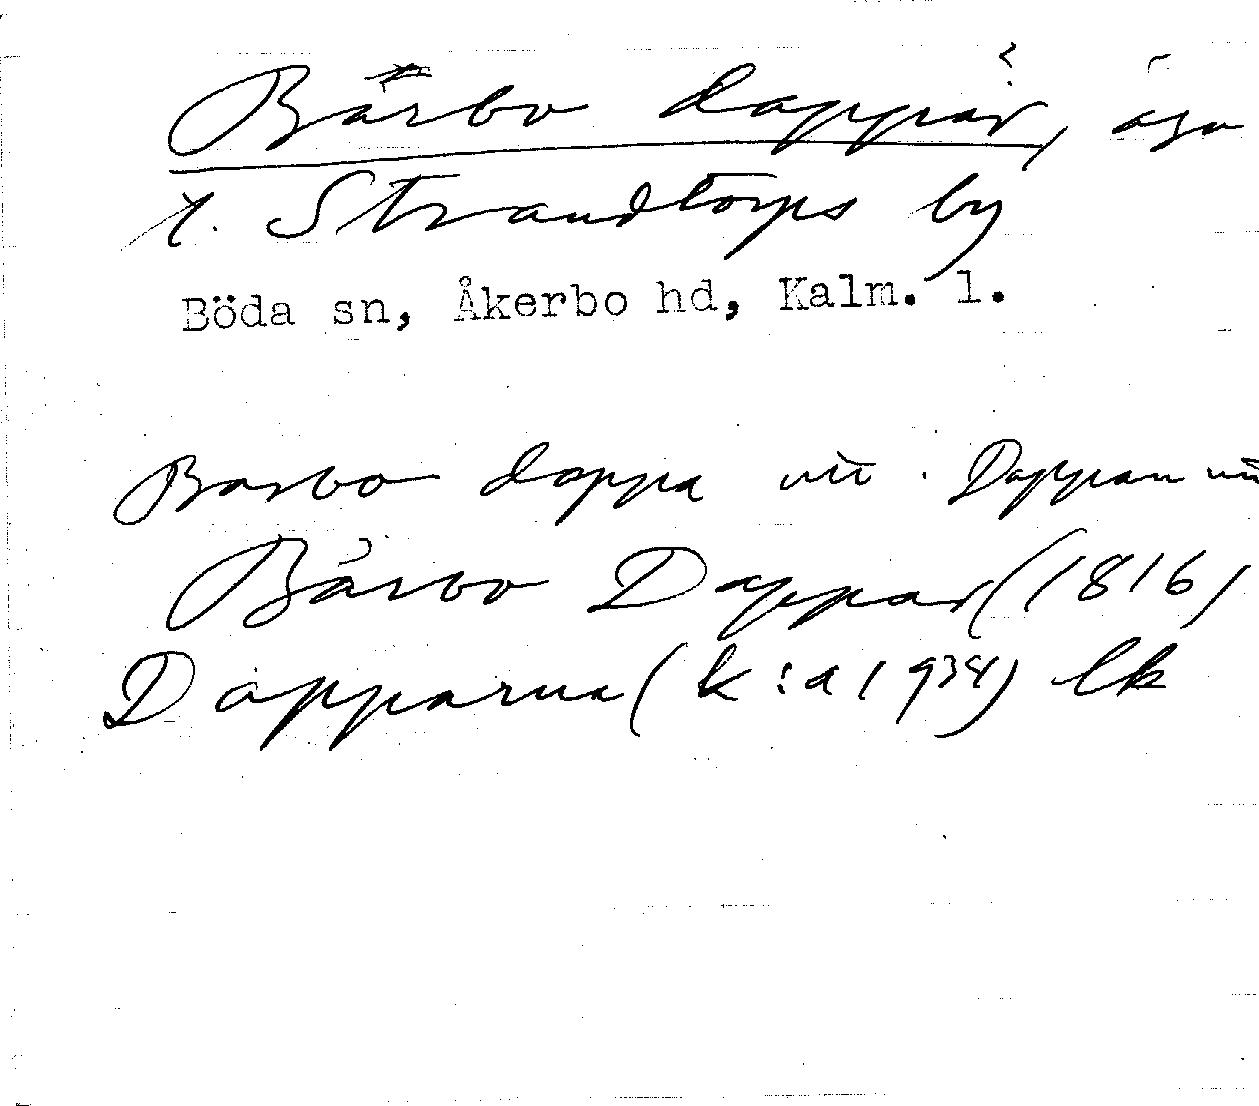 Bårbo dappar, ägo
t. Strandtorps by
Böda sn, Åkerbo hd, Kalm. l.
Barbo dappa utt. Dappan utt
Bårbo Dappar (1816)
Dapparna (k:a 1934) lk